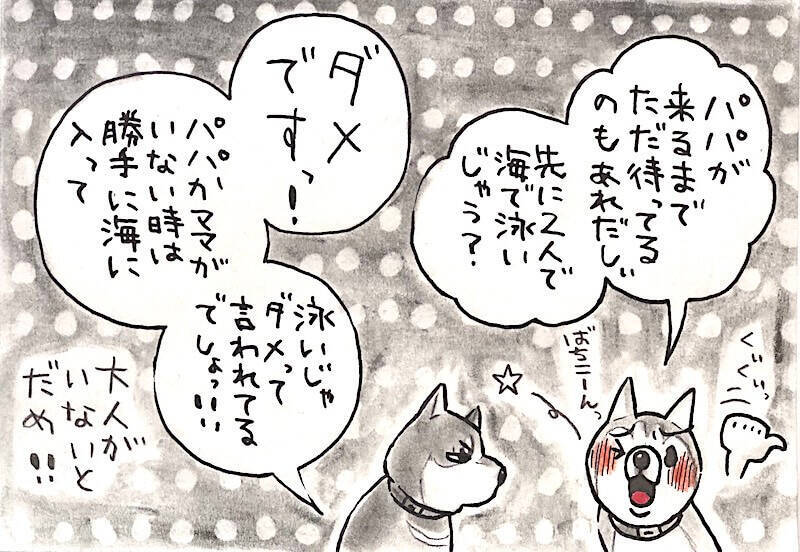 パパが
来るまで
ただ待ってる
のもあれだし゛
先に2人で
海で泳い
じゃう？
ぐいぐいっ
ばちこーんっ
ダメ
ですっ！
パパかママが
いない時は
勝手に海に
入って
泳いじゃ
ダメって
言われてる
でしょっ!!!
大人が
いないと
だめ!!